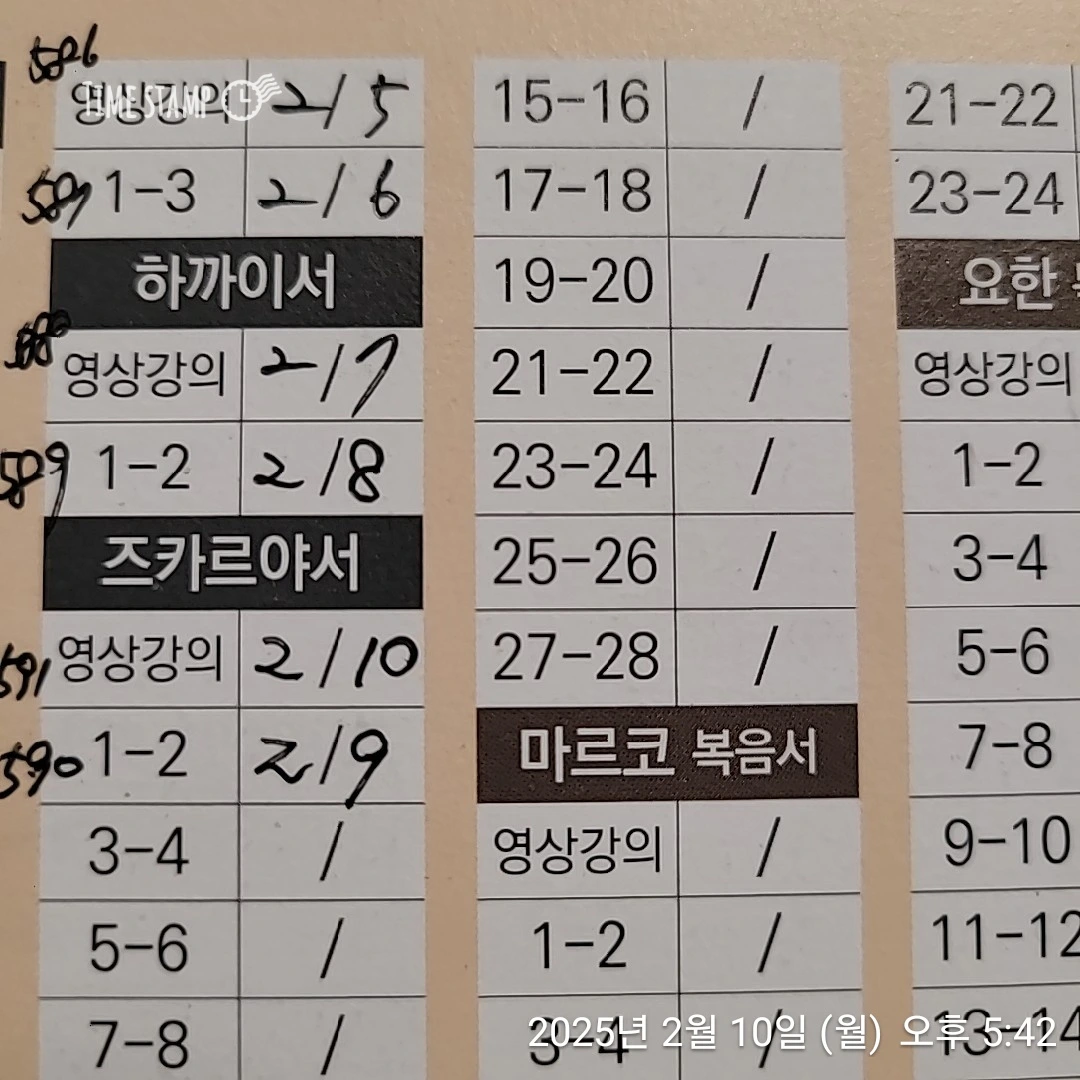 586
영상강의 2/5
TIME STAMP
589 1-3 2/6
하까이서
588
영상강의 2/7
589 1-2 2/8
즈카르야서
591 영상강의 2/10
590 1-2 2/9
3-4 /
5-6 /
7-8 /
15-16 /
17-18 /
19-20 /
21-22 /
23-24 /
25-26 /
27-28 /
마르코 복음서
영상강의 /
1-2 /
3-4 /
21-22
23-24
요한
영상강의
1-2
3-4
5-6
7-8
9-10
11-12
13-14
2025년 2월 10일 (월) 오후 5:42